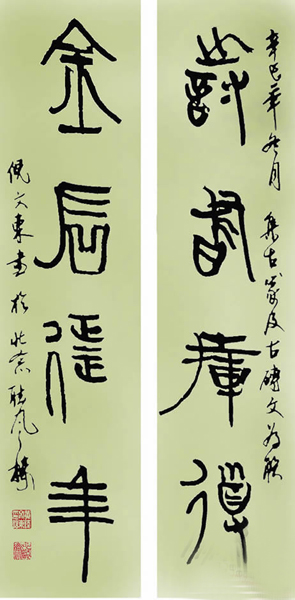 辛巳年冬月集古篆及古磚文为联
詩書
金石延年
倪文東書於北京聽风樓